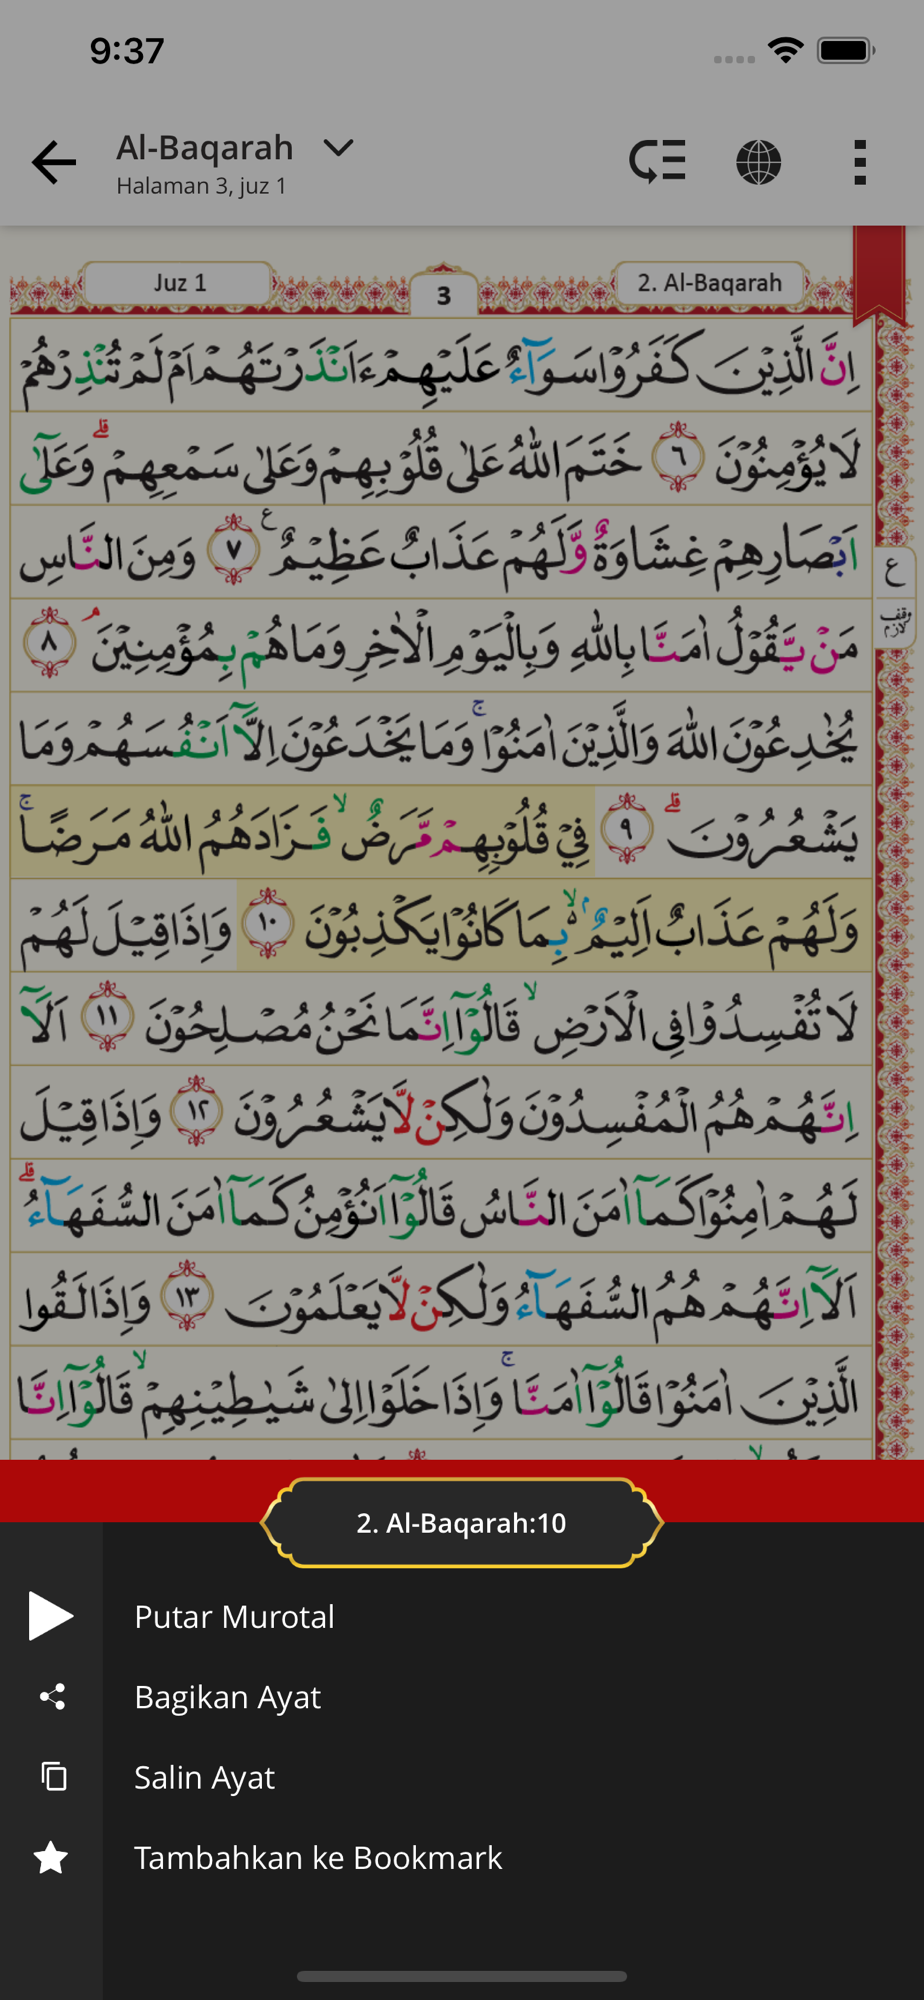 9:37
Al-Baqarah
Halaman 3, juz 1
Juz 1
3
2. Al-Baqarah
اِنَّ الَّذِيْنَ كَفَرُوْا سَوَاۤءٌ عَلَيْهِمْ ءَاَنْذَرْتَهُمْ اَمْ لَمْ تُنْذِرْهُمْ
لَا يُؤْمِنُوْنَ ٦ خَتَمَ اللّٰهُ عَلٰى قُلُوْبِهِمْ وَعَلٰى سَمْعِهِمْ ۗ وَعَلٰٓى
اَبْصَارِهِمْ غِشَاوَةٌ وَّلَهُمْ عَذَابٌ عَظِيْمٌ ࣖ ٧ وَمِنَ النَّاسِ
ع
مَنْ يَّقُوْلُ اٰمَنَّا بِاللّٰهِ وَبِالْيَوْمِ الْاٰخِرِ وَمَا هُمْ بِمُؤْمِنِيْنَ ۘ ٨
وقف لازم
يُخٰدِعُوْنَ اللّٰهَ وَالَّذِيْنَ اٰمَنُوْا ۚ وَمَا يَخْدَعُوْنَ اِلَّآ اَنْفُسَهُمْ وَمَا
يَشْعُرُوْنَ ۗ ٩ فِيْ قُلُوْبِهِمْ مَّرَضٌ ۙ فَزَادَهُمُ اللّٰهُ مَرَضًا ۚ
وَلَهُمْ عَذَابٌ اَلِيْمٌ ۢ ۙ بِمَا كَانُوْا يَكْذِبُوْنَ ١٠ وَاِذَا قِيْلَ لَهُمْ
لَا تُفْسِدُوْا فِى الْاَرْضِ ۙ قَالُوْٓا اِنَّمَا نَحْنُ مُصْلِحُوْنَ ١١ اَلَآ
اِنَّهُمْ هُمُ الْمُفْسِدُوْنَ وَلٰكِنْ لَّا يَشْعُرُوْنَ ١٢ وَاِذَا قِيْلَ
لَهُمْ اٰمِنُوْا كَمَآ اٰمَنَ النَّاسُ قَالُوْٓا اَنُؤْمِنُ كَمَآ اٰمَنَ السُّفَهَاۤءُ ۗ
اَلَآ اِنَّهُمْ هُمُ السُّفَهَاۤءُ وَلٰكِنْ لَّا يَعْلَمُوْنَ ١٣ وَاِذَا لَقُوا
الَّذِيْنَ اٰمَنُوْا قَالُوْٓا اٰمَنَّا ۚ وَاِذَا خَلَوْا اِلٰى شَيٰطِيْنِهِمْ ۙ قَالُوْٓا اِنَّا
2. Al-Baqarah:10
Putar Murotal
Bagikan Ayat
Salin Ayat
Tambahkan ke Bookmark